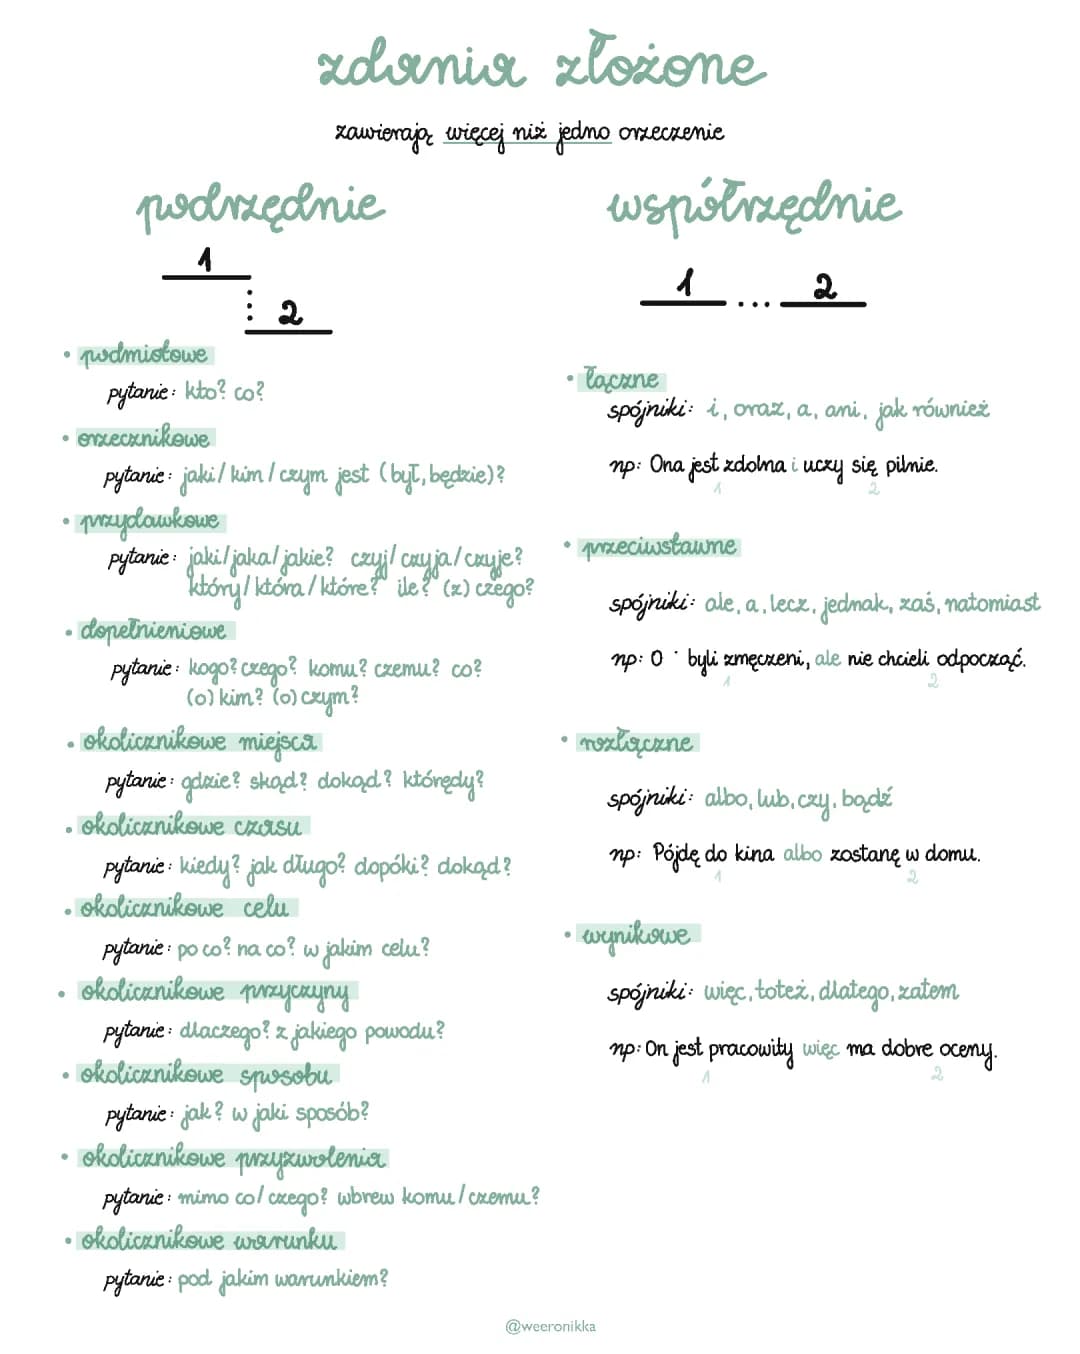 zdania złożone
zawierają więcej niż jedno orzeczenie
podrzędnie
1
2
• podmiotowe
pytanie: kto? co?
• orzecznikowe
pytanie: jaki / kim / czym jest (był, będzie)?
• przydawkowe
pytanie: jaki/jaka/jakie? czyj/czyja/czyje?
który/która/które? ile? (z) czego?
• dopełnieniowe
pytanie: kogo? czego? komu? czemu? co?
(o) kim? (o) czym?
• okolicznikowe miejsca
pytanie: gdzie? skąd? dokąd? którędy?
• okolicznikowe czasu
pytanie: kiedy? jak długo? dopóki? dokąd?
• okolicznikowe celu
pytanie: po co? na co? w jakim celu?
• okolicznikowe przyczyny
pytanie: dlaczego? z jakiego powodu?
• okolicznikowe sposobu
pytanie: jak? w jaki sposób?
• okolicznikowe przyzwolenia
pytanie: mimo co/czego? wbrew komu/czemu?
• okolicznikowe warunku
pytanie: pod jakim warunkiem?
współrzędnie
1 ... 2
• łączne
spójniki: i, oraz, a, ani, jak również
np: Ona jest zdolna i uczy się pilnie.
1 2
• przeciwstawne
spójniki: ale, a, lecz, jednak, zaś, natomiast
np: O byli zmęczeni, ale nie chcieli odpocząć.
1 2
• rozłączne
spójniki: albo, lub, czy, bądź
np: Pójdę do kina albo zostanę w domu.
1 2
• wynikowe
spójniki: więc, toteż, dlatego, zatem
np: On jest pracowity więc ma dobre oceny.
1 2
@weeronikka